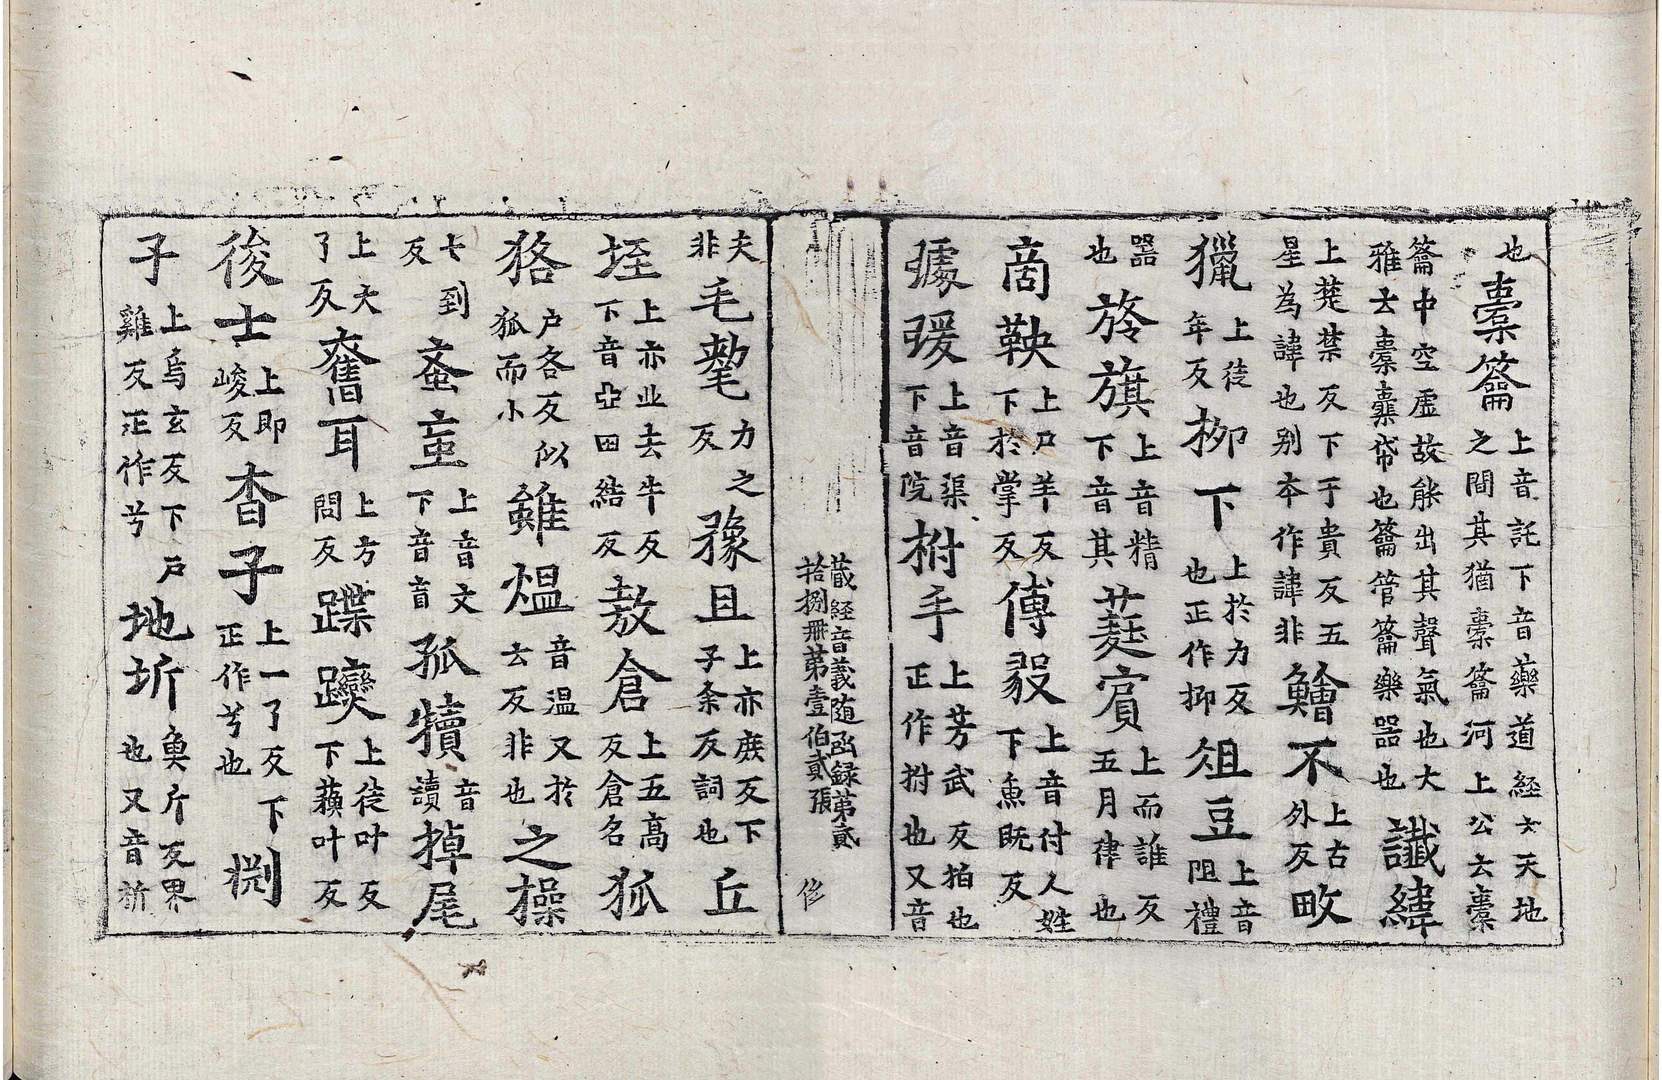 也橐籥上音託下音藥道經云天地之間其猶橐籥河上公云橐
籥中空虛故能出其聲氣也大雅云橐囊帒也籥管籥樂器也讖緯
上楚禁反下于貴反五星為諱也別本作諱非鱠不上古外反畋
獵上徒年反栁下上於力反也正作抑俎豆上音阻禮
器也旍旗上音精下音其蕤賓上而誰反五月律也
啇鞅上尸羊反下於掌反傅毅上音付人姓下魚既反
璩瑗上音渠下音院柎手上芳武反拍也正作拊也又音
藏經音義隨函錄第貳拾捌冊第壹伯貳張
夫非毛氂力之反貑且上亦庻反下子条反詞也丘
垤上亦业去牛反下音亞田結反敖倉上五高反倉名狐
狢户各反似狐而小雖熅音温又於云反非也之操
七到反蚉䖟上音文下音盲孤犢音讀掉尾
上大了反奮耳上方問反蹀躞上徒叶反下蘓叶反
後士上即峻反杳子上一了反下正作兮也捌
子上烏玄反下戶雞反正作兮地圻奐斤反界也又音祈